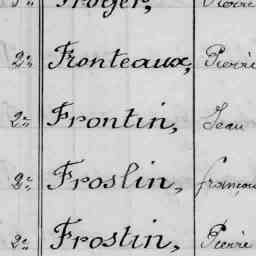 Froger,
2e Fronteaux, Pierre
2e Frontin, Jean
2e Froslin, françois
2e Frostin, Pierre